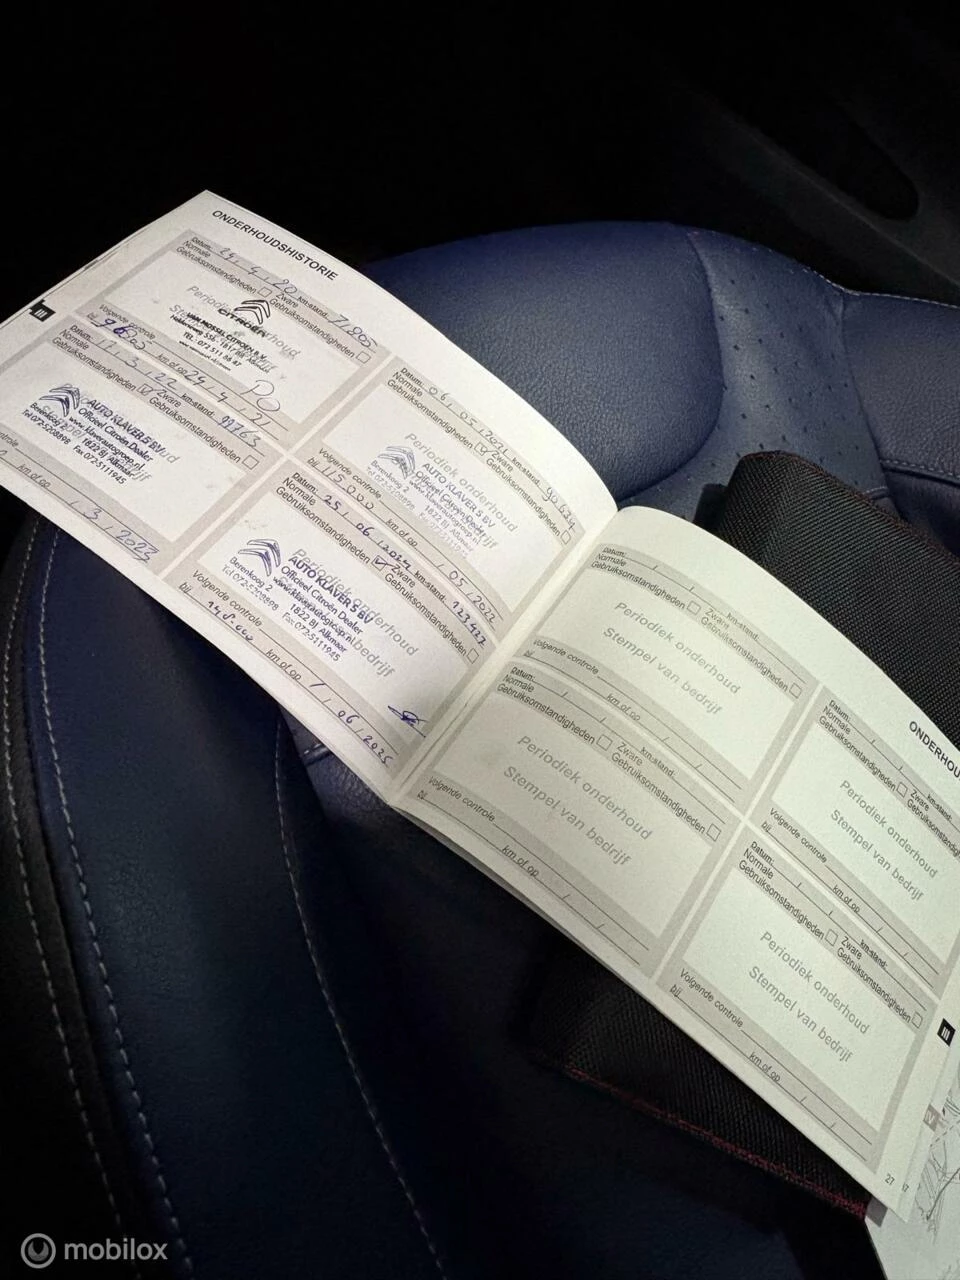 ONDERHOUDSHISTORIE
Datum: 29, 4, 20 km-stand: 71.805
Normale Zware
Gebruiksomstandigheden Gebruiksomstandigheden
Periodiek onderhoud
CITROËN
VAN MOSSEL CITROËN B.V.
TEL.: 072 511 86 87
Volgende controle
bij 96805 km of op 29, 4, 21
III
Datum: 11, 3, 22 km-stand: 99763
Normale Zware
Gebruiksomstandigheden Gebruiksomstandigheden
AUTO KLAVER 5 BV
Officieel Citroën Dealer
www.klaverautogroep.nl
Berenkoog 2 1822 BJ Alkmaar
Tel 072-5208898 Fax 072-5111945
km of op 1, 3, 2023
Datum: 06, 05, 2021 km-stand: 90.624
Normale Zware
Gebruiksomstandigheden Gebruiksomstandigheden
Periodiek onderhoud
AUTO KLAVER 5 BV
Officieel Citroën Dealer
www.klaverautogroep.nl
Berenkoog 2 1822 BJ Alkmaar
Tel 072-5208898 Fax 072-5111945
Volgende controle
bij 115000 km of op / 05, 2022
Datum: 25, 06, 2024 km-stand: 123427
Normale Zware
Gebruiksomstandigheden Gebruiksomstandigheden
Periodiek onderhoud
AUTO KLAVER 5 BV
Officieel Citroën Dealer
www.klaverautogroep.nl
Berenkoog 2 1822 BJ Alkmaar
Tel 072-5208898 Fax 072-5111945
Volgende controle
bij 148.000 km of op / 06, 2025
Datum: / / km-stand:
Normale Zware
Gebruiksomstandigheden Gebruiksomstandigheden
Periodiek onderhoud
Stempel van bedrijf
Volgende controle
bij km of op / /
Datum: / / km-stand:
Normale Zware
Gebruiksomstandigheden Gebruiksomstandigheden
Periodiek onderhoud
Stempel van bedrijf
Volgende controle
bij km of op / /
ONDERHOU
Datum: / / km-stand:
Normale Zware
Gebruiksomstandigheden
Periodiek onderhoud
Stempel van bedrijf
Volgende controle
bij km of op / /
Datum: / / km-stand:
Normale Zware
Gebruiksomstandigheden Gebruiksomstandigheden
Periodiek onderhoud
Stempel van bedrijf
Volgende controle
bij km of op / /
III
IV
27
mobilox